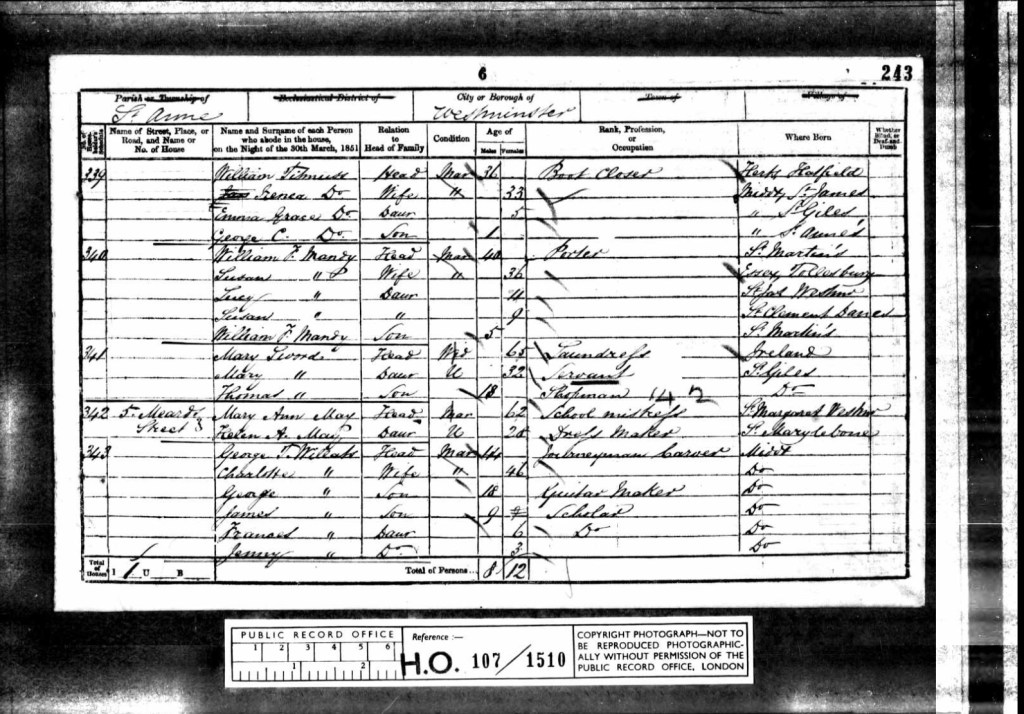 6
243
Parish or Township of
St Anne
Ecclesiastical District of
City or Borough of
Westminster
Town of
Village of
Name of Street, Place, or Road, and Name or No. of House
Name and Surname of each Person who abode in the house, on the Night of the 30th March, 1851
Relation to Head of Family
Condition
Age of
Males Females
Rank, Profession, or Occupation
Where Born
Whether Blind, or Deaf and Dumb
339 William Titmuss Head Mar 36 Boot Closer Herts Hatfield
Renea Do Wife " 33 Middx St James
Emma Grace Do Daur 5 " St Giles
George C. Do Son 1 " St Anne's
340 William F. Mandy Head Mar 40 Porter St Martin's
Susan " Wife " 36 Essex Tollesbury
Lucy " Daur 11 St Jas Westmr
Susan " " 9 St Clement Danes
William F. Mandy Son 5 St Martin's
341 Mary Swords Head Wid 65 Laundress Ireland
Mary " Daur U 32 Servant St Giles
Thomas " Son 18 Shopman 142 Do
342 5 Meards Street Mary Ann May Head Mar 62 School mistress St Margaret Westmr
Helen A. May Daur U 28 Dress Maker St Marylebone
343 George T. Head Mar 44 Journeyman Carver Middx
Charlotte " Wife " 46 Do
George " Son 18 Guitar Maker Do
James " Son 9 Scholar Do
Frances " Daur 6 Do Do
Jenny " Do 3 Do
Total of Houses 1 1 U B Total of Persons... 8 12
PUBLIC RECORD OFFICE
1 2 3 4 5 6
1 2
Reference :—
H.O. 107/1510
COPYRIGHT PHOTOGRAPH—NOT TO
BE REPRODUCED PHOTOGRAPHIC-
ALLY WITHOUT PERMISSION OF THE
PUBLIC RECORD OFFICE, LONDON